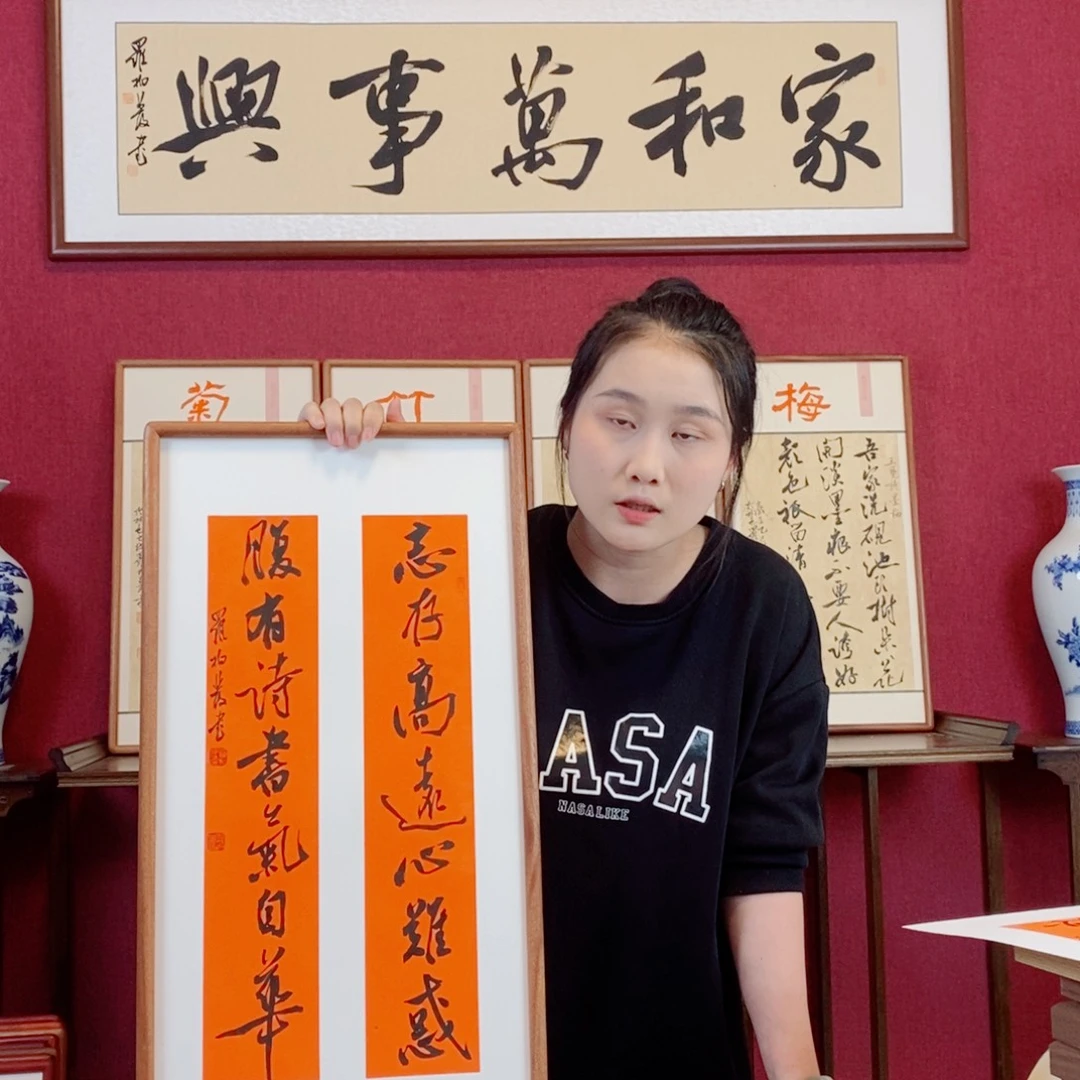 家和萬事興
羅柏叢書
菊
竹
梅
吾家洗硯池頭樹朵朵花
開淡墨痕不要人誇好
顏色祇留清
志存高遠心難惑
腹有詩書氣自華
ASA
NASALIKE